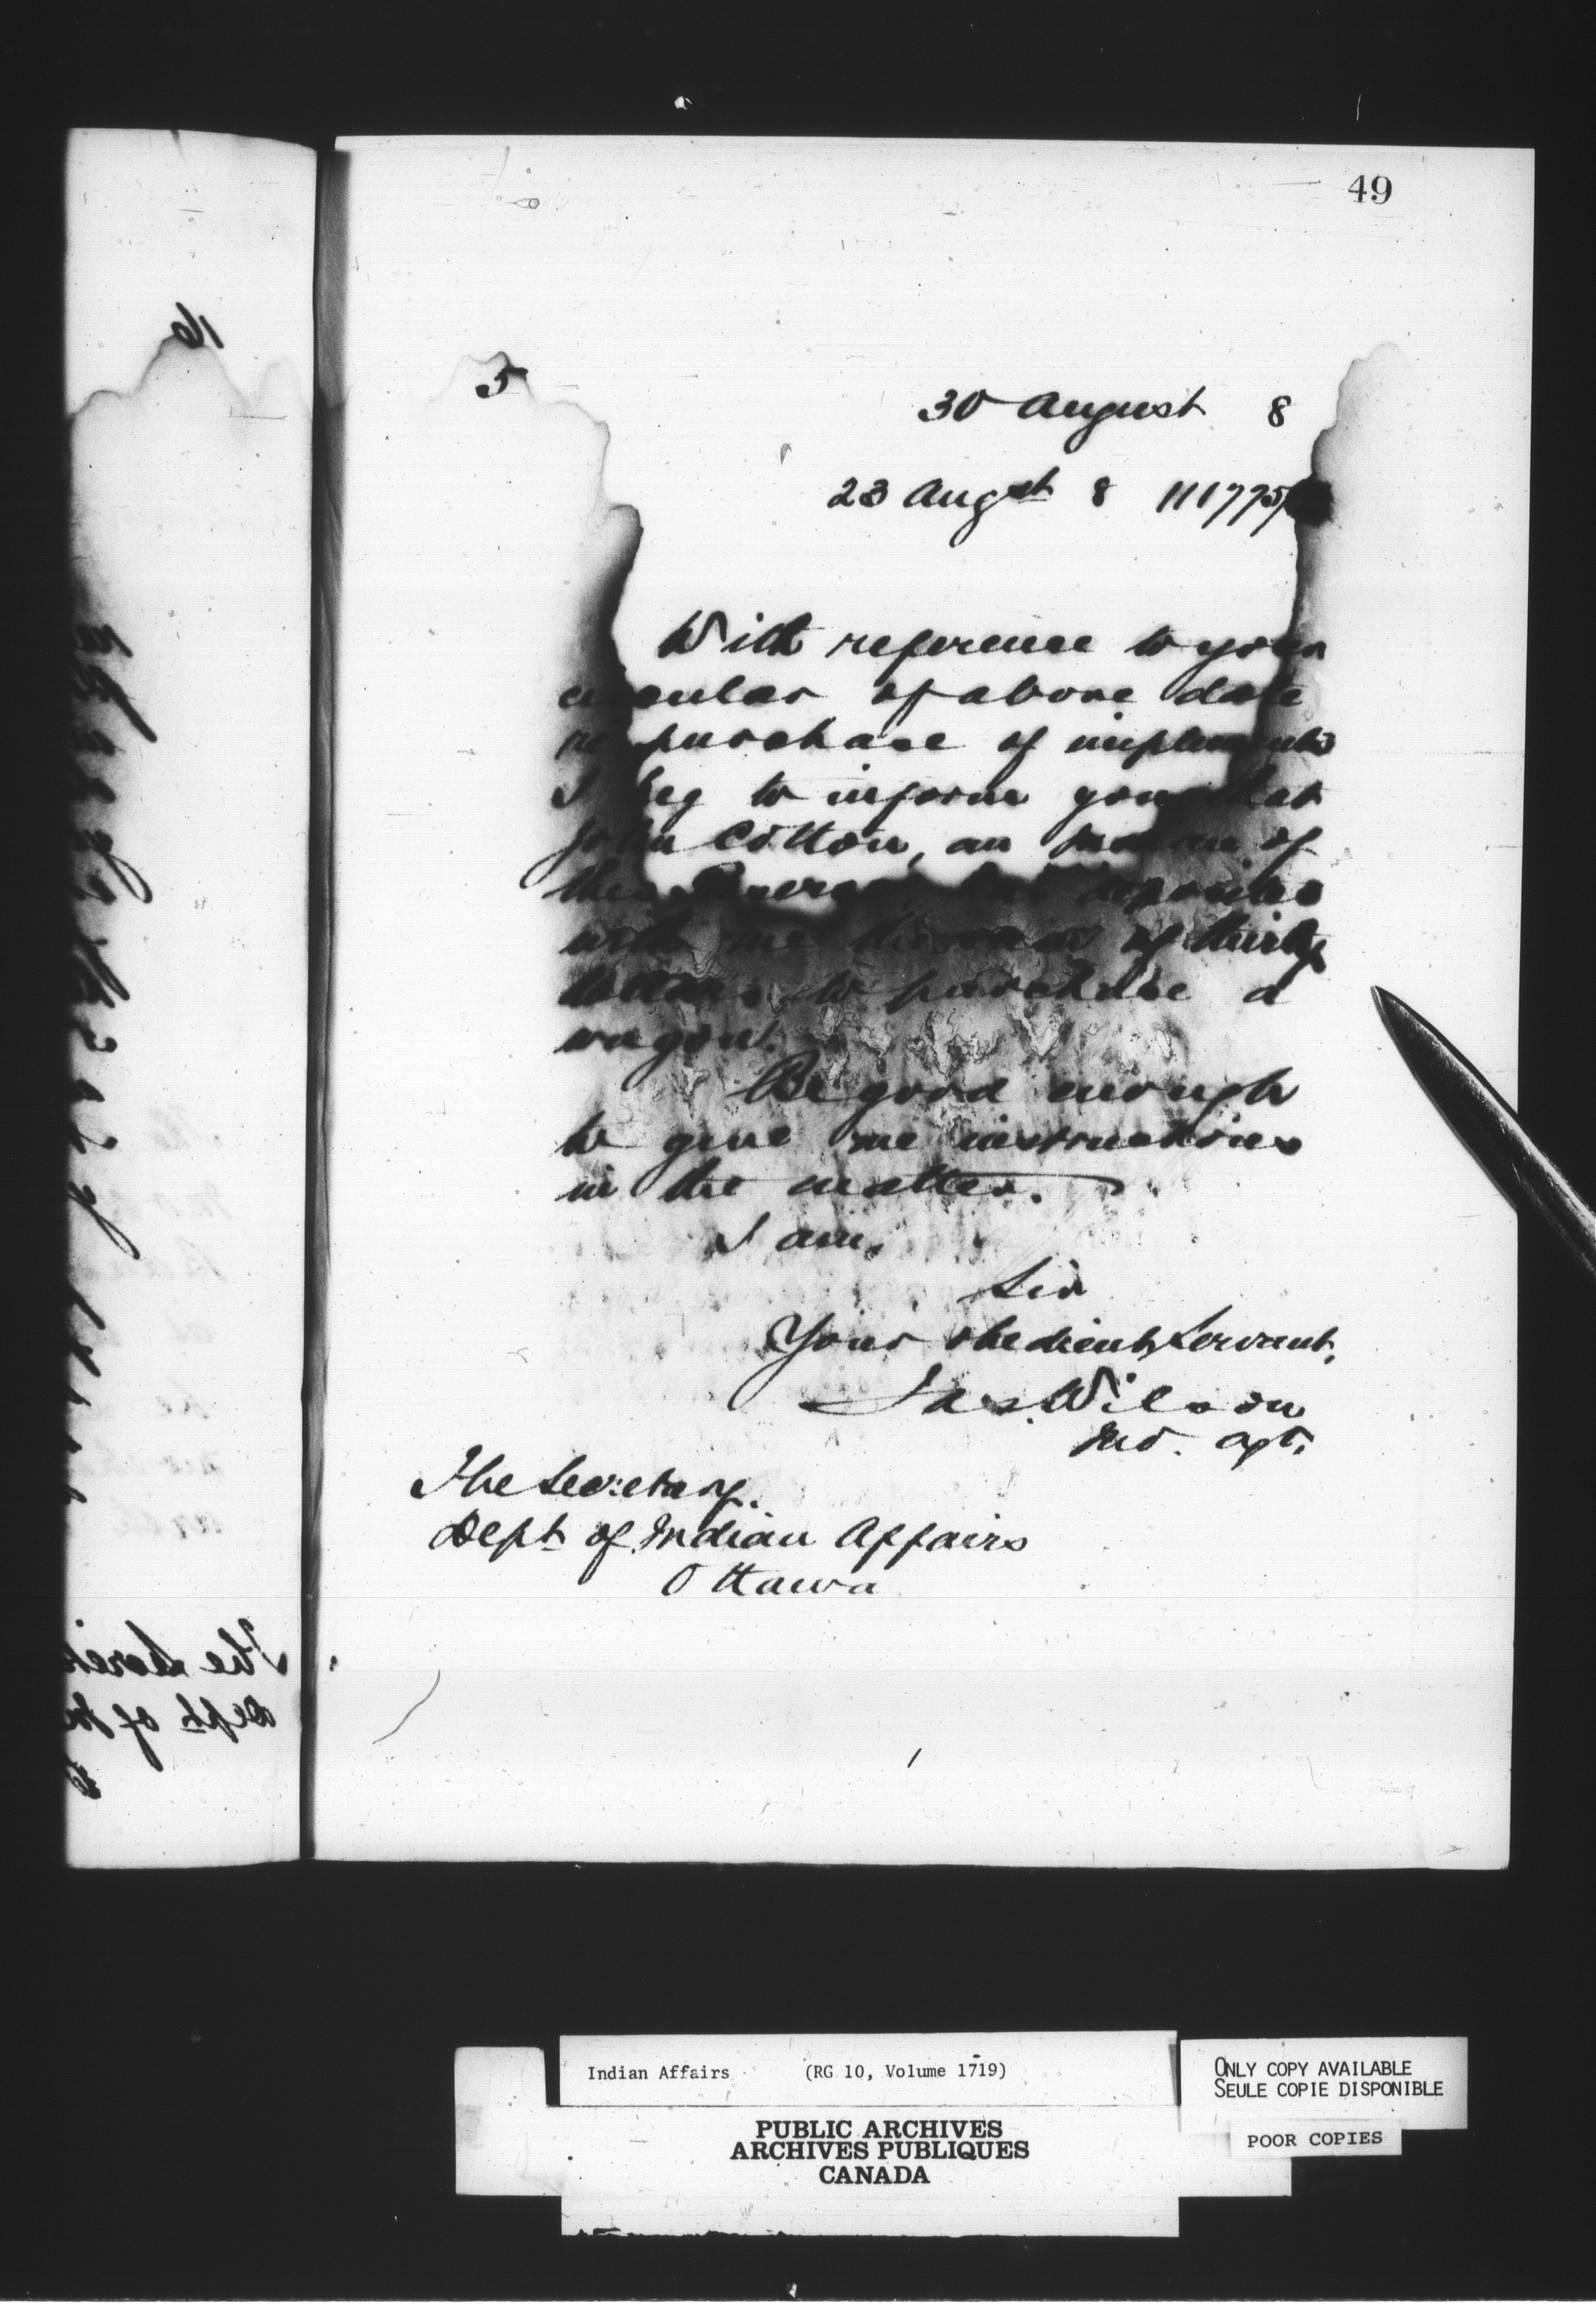 49
16
5
30 August 8
23 Augst 8 111775
With reference to your
circular of above date
re purchase of implements
I beg to inform you that
John Cotton, an Indian of
the deposited
with me the sum of thirty
dollars to purchase a
wagon.
Be good enough
to give me instructions
in the matter.
I am,
Sir
Your obedient Servant,
Jas. Wilson
Ind. Agt.
The Secretary.
Dept of Indian Affairs
Ottawa
The Secret
Dept of In
O
Indian Affairs (RG 10, Volume 1719)
ONLY COPY AVAILABLE
SEULE COPIE DISPONIBLE
PUBLIC ARCHIVES
ARCHIVES PUBLIQUES
CANADA
POOR COPIES